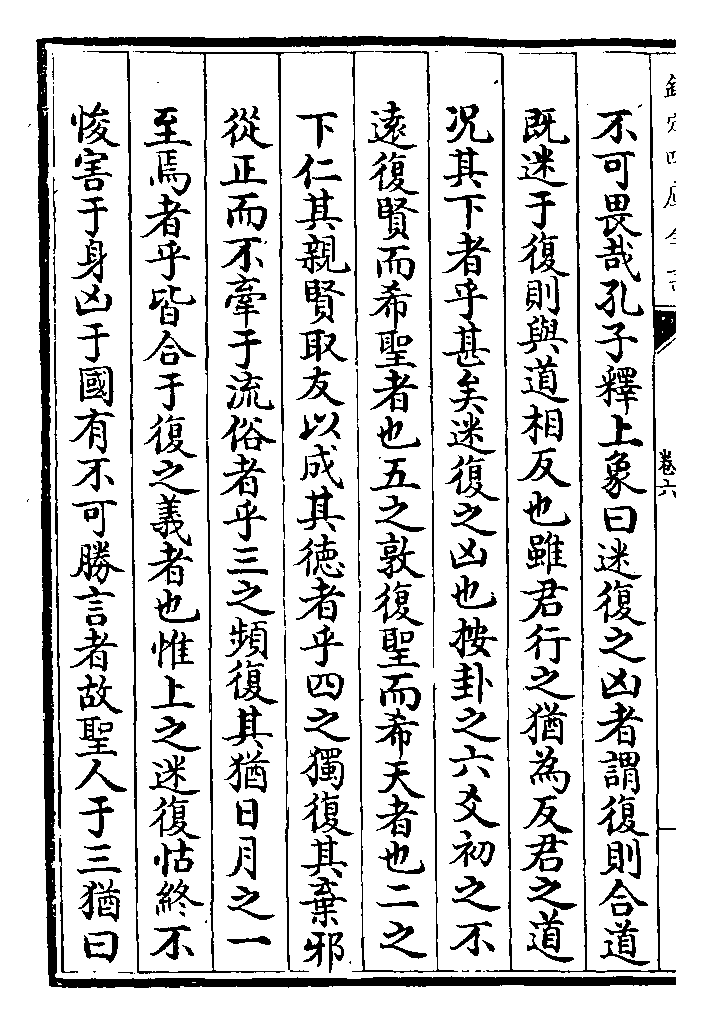 欽定四庫全書
卷六
不可畏哉孔子釋上象曰迷復之凶者謂復則合道
既迷于復則與道相反也雖君行之猶為反君之道
况其下者乎甚矣迷復之凶也按卦之六爻初之不
逺復賢而希聖者也五之敦復聖而希天者也二之
下仁其親賢取友以成其德者乎四之獨復其棄邪
從正而不牽于流俗者乎三之頻復其猶日月之一
至焉者乎皆合于復之義者也惟上之迷復怙終不
悛害于身凶于國有不可勝言者故聖人于三猶曰